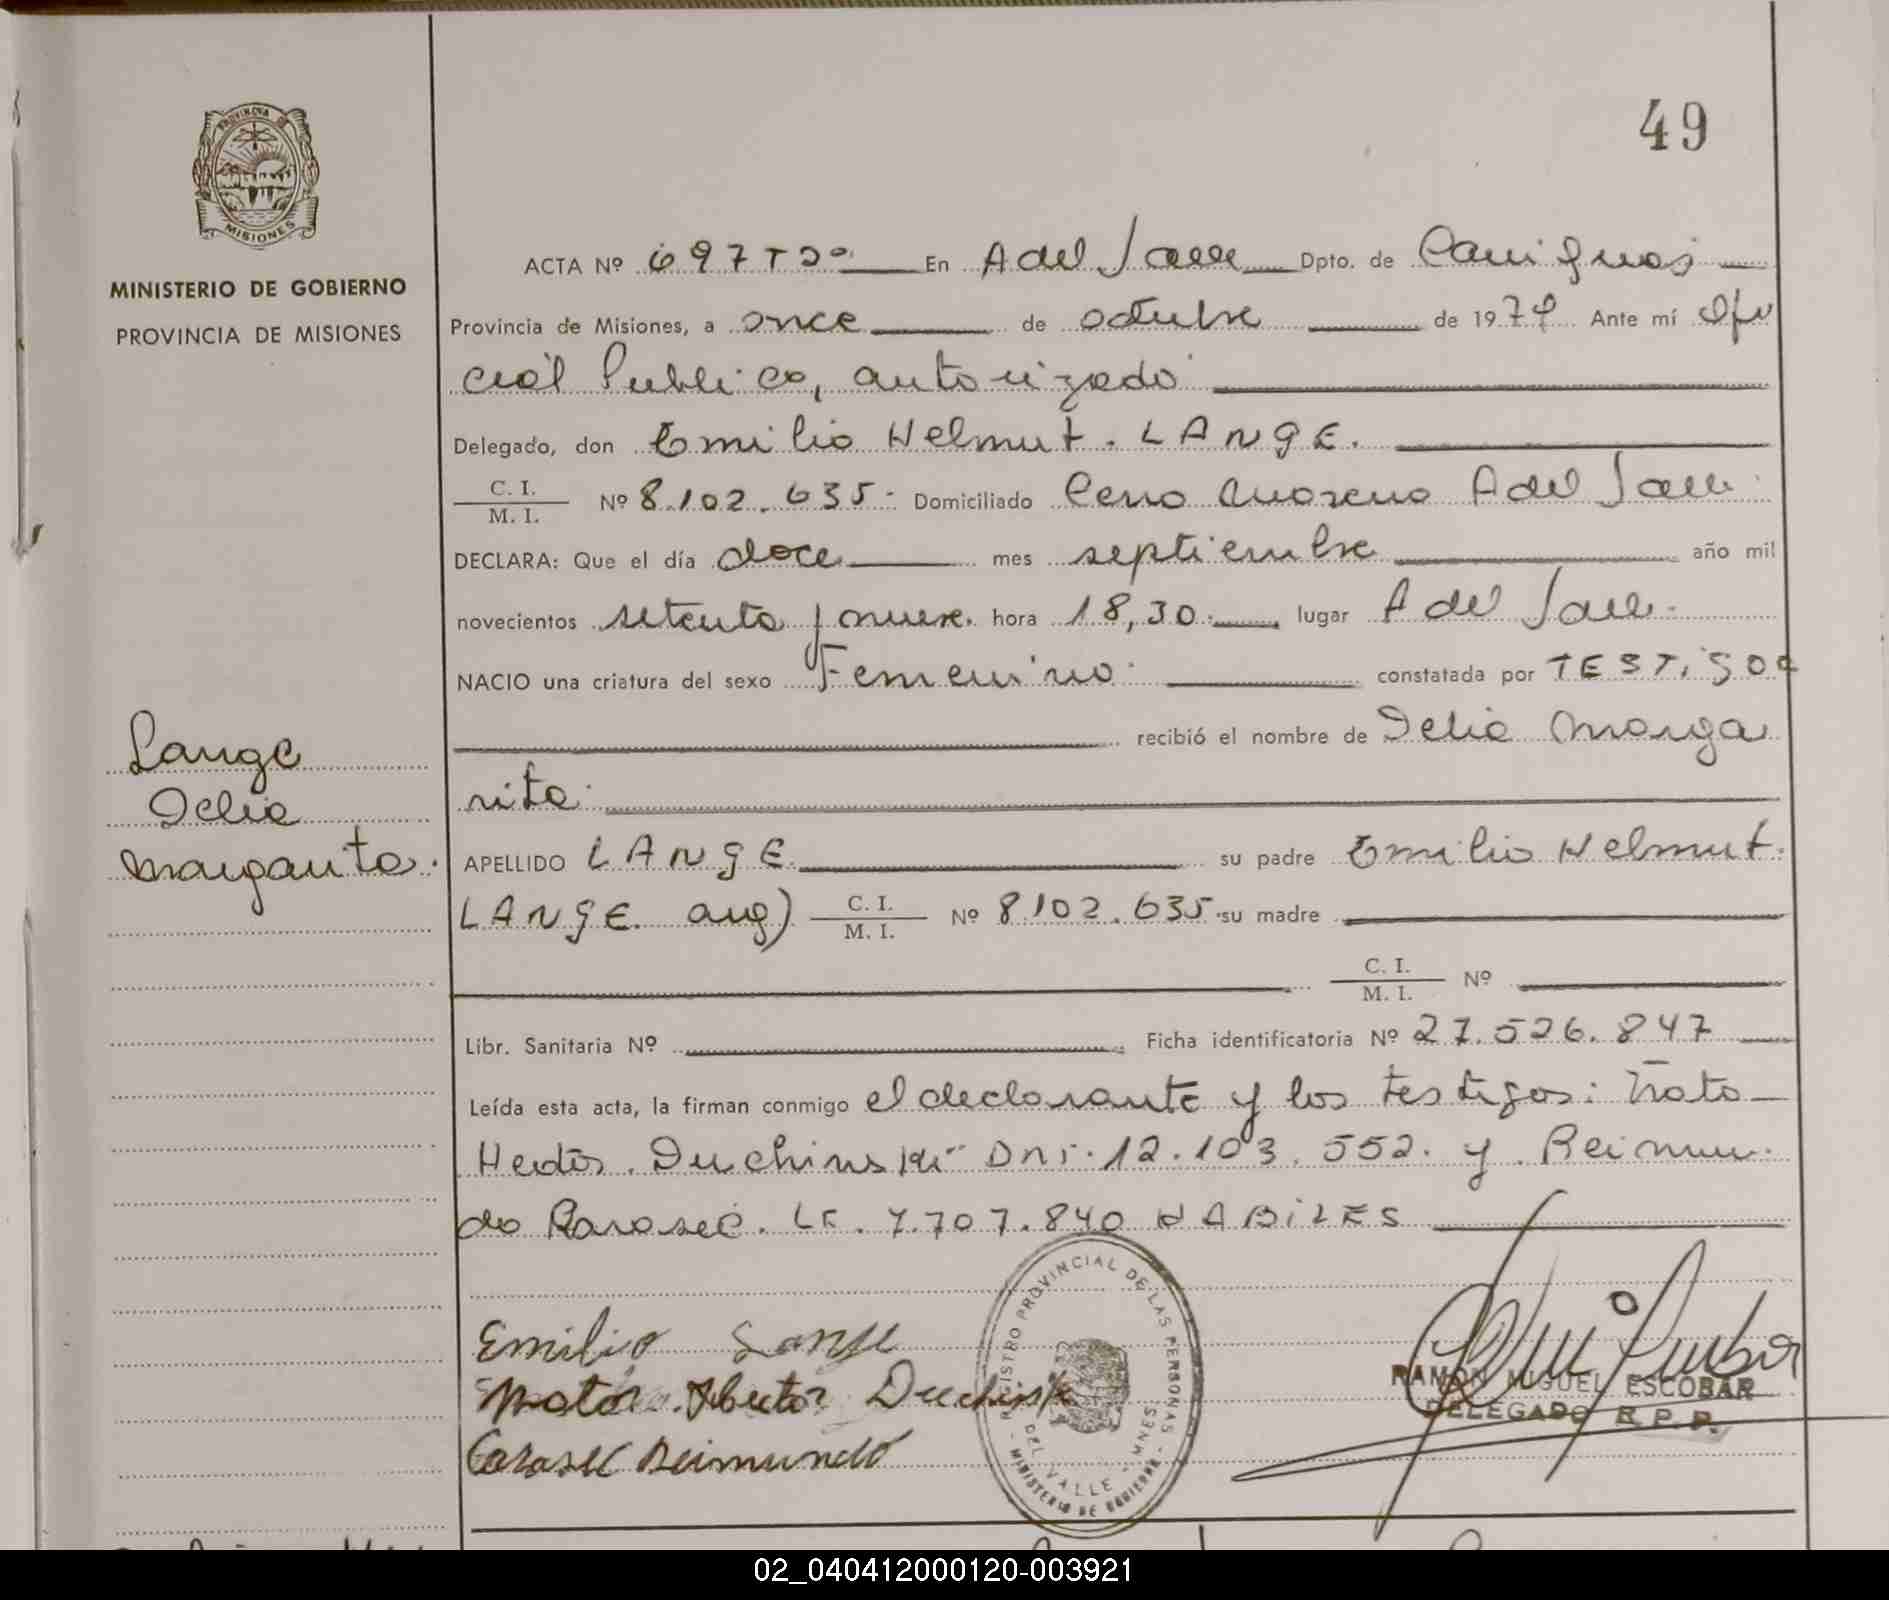 49
PROVINCIA DE
MISIONES
MINISTERIO DE GOBIERNO
PROVINCIA DE MISIONES
ACTA Nº 697 Tº En A del Valle Dpto. de Cainguas
Provincia de Misiones, a once de octubre de 1979 Ante mí Ofi
cial Publico, autorizado
Delegado, don Emilio Helmut. LANGE.
C. I.
M. I.
Nº 8.102.635. Domiciliado Cerro Moreno A del Valle.
DECLARA: Que el día doce mes septiembre año mil
novecientos setenta y nueve. hora 18,30. lugar A del Valle.
NACIO una criatura del sexo Femenino constatada por TESTigos
recibió el nombre de Delia Marga
rita.
Lange
Delia
Margarita.
APELLIDO LANGE su padre Emilio Helmut.
LANGE. arg) C. I. / M. I. Nº 8.102.635. su madre
C. I. / M. I. Nº
Libr. Sanitaria Nº Ficha identificatoria Nº 27.526.847
Leída esta acta, la firman conmigo el declarante y los testigos:
Dni. 12.103.552. y Reimun
do LE. 7.707.840 HABiLES
Emilio Lange
Reimundo
REGISTRO PROVINCIAL DE LAS PERSONAS
DEL VALLE - MNES.
- MINISTERIO DE GOBIERNO -
RAMON MIGUEL ESCOBAR
DELEGADO R.P.P.
02_040412000120-003921